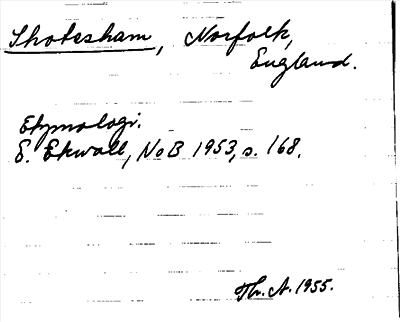 Shotesham, Norfolk,
England.
Etymologi.
E. Ekwall, NoB 1953, s. 168.
Th. A. 1955.